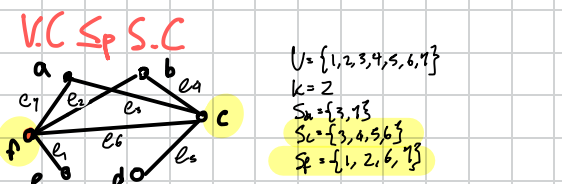 V.C ≤p S.C
a
b
e4
e7
e2
e3
c
f
e6
e1
e5
e
d
U = {1,2,3,4,5,6,7}
k = 2
Sa = {3,7}
Sc = {3,4,5,6}
Sf = {1,2,6,7}